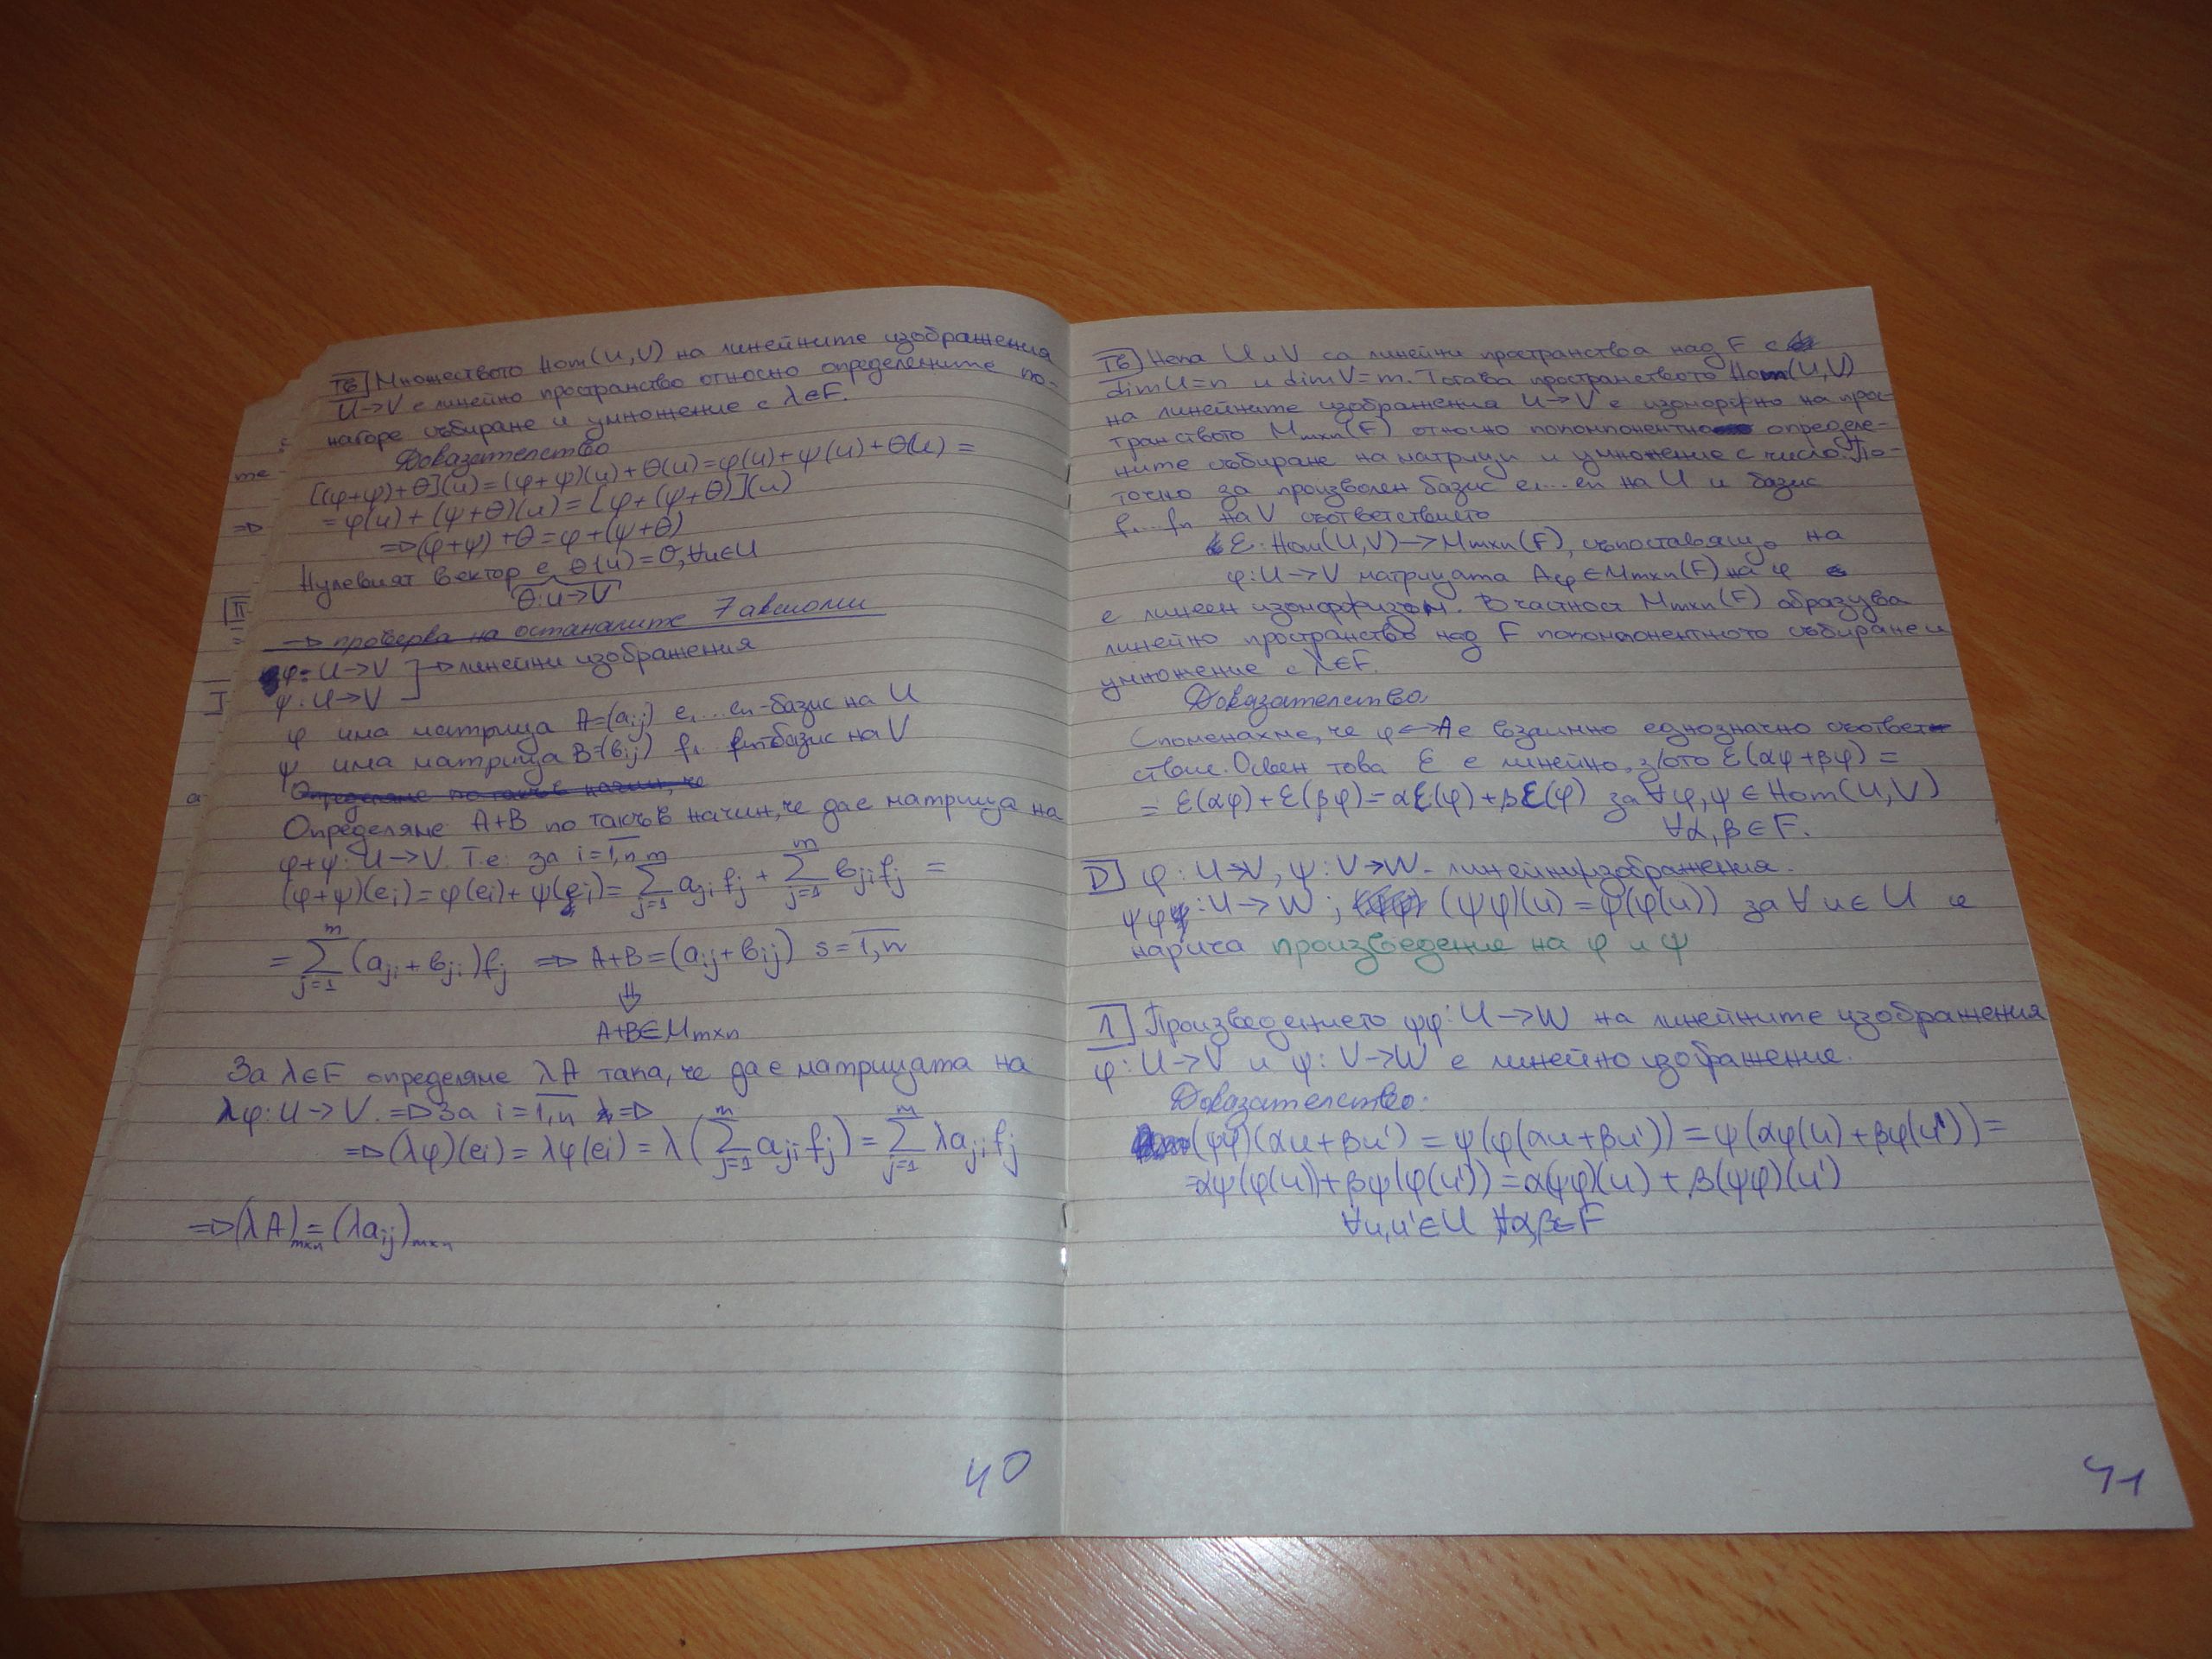 Тв] Множеството Hom(U,V) на линейните изображения
U→V е линейно пространство относно определените по-
нагоре събиране и умножение с λ∈F.
Доказателство
[(φ+ψ)+θ](u)=(φ+ψ)(u)+θ(u)=φ(u)+ψ(u)+θ(u)=
=φ(u)+(ψ+θ)(u)=[φ+(ψ+θ)](u)
=>(φ+ψ)+θ=φ+(ψ+θ)
Нулевият вектор е θ(u)=0,∀u∈U
θ:U→V
→ проверка на останалите 7 аксиоми
φ: U→V ]→линейни изображения
ψ: U→V
φ има матрица A=(aij) e1...en-базис на U
ψ има матрица B=(вij) f1... fm-базис на V
Определяме по такъв начин, че
Определяме A+B по такъв начин, че да е матрица на
φ+ψ: U→V. Т.е. за i=1,n
(φ+ψ)(ei)=φ(ei)+ψ(ei)=∑_{j=1}^{m} aji fj + ∑_{j=1}^{m} вji fj =
=∑_{j=1}^{m} (aji+вji)fj => A+B=(aij+вij) s=1,n
⇓
A+B∈Mmxn
За λ∈F определяме λA така, че да е матрицата на
λφ: U→V. =>За i=1,n =>
=>(λφ)(ei)=λφ(ei)=λ(∑_{j=1}^{m} aji fj)=∑_{j=1}^{m} λaji fj
=>(λA)mxn=(λaij)mxn
40
Тв] Нека U и V са линейни пространства над F с
dimU=n и dimV=m. Тогава пространството Hom(U,V)
на линейните изображения U→V е изоморфно на прос-
транството Mmxn(F) относно покомпонентно определе-
ните събиране на матрици и умножение с число. По-
точно за произволен базис e1...en на U и базис
f1...fn на V съответствието
ε: Hom(U,V)→Mmxn(F), съпоставящо на
φ:U→V матрицата Aφ∈Mmxn(F) на φ
е линеен изоморфизъм. В частност Mmxn(F) образува
линейно пространство над F покомпонентното събиране и
умножение с λ∈F.
Доказателство
Споменахме, че φ↔A е взаимно еднозначно съответ-
ствие. Освен това ε е линейно, з/ото ε(αφ+βψ)=
=ε(αφ)+ε(βψ)=αε(φ)+βε(ψ) за ∀φ,ψ∈Hom(U,V)
∀α,β∈F.
D] φ: U→V, ψ: V→W - линейни изображения.
ψφ: U→W; (ψφ)(u)=ψ(φ(u)) за ∀u∈U се
нарича произведение на φ и ψ
Л] Произведението ψφ: U→W на линейните изображения
φ: U→V и ψ: V→W е линейно изображение.
Доказателство:
(ψφ)(αu+βu')=ψ(φ(αu+βu'))=ψ(αφ(u)+βφ(u'))=
=αψ(φ(u))+βψ(φ(u'))=α(ψφ)(u)+β(ψφ)(u')
∀u,u'∈U ∀α,β∈F
41